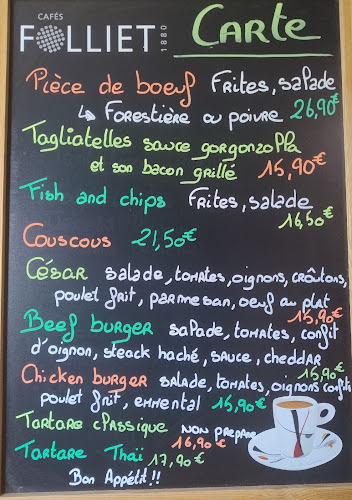 CAFÉS
FOLLIET 1880
CARTE
Pièce de boeuf Frites, salade
↳ Forestière ou poivre 26,90€
Tagliatelles sauce gorgonzolla
et son bacon grillé 15,90€
Fish and chips Frites, salade
16,50€
Couscous 21,50€
César salade, tomates, oignons, croûtons,
poulet frit, parmesan, oeuf au plat
15,90€
Beef burger salade, tomates, confit
d'oignon, steack haché, sauce, cheddar
15,90€
Chicken burger salade, tomates, oignons confits
poulet frit, emmental 15,90€
Tartare classique non preparé
16,90€
Tartare Thaï 17,90€
Bon Appétit!!